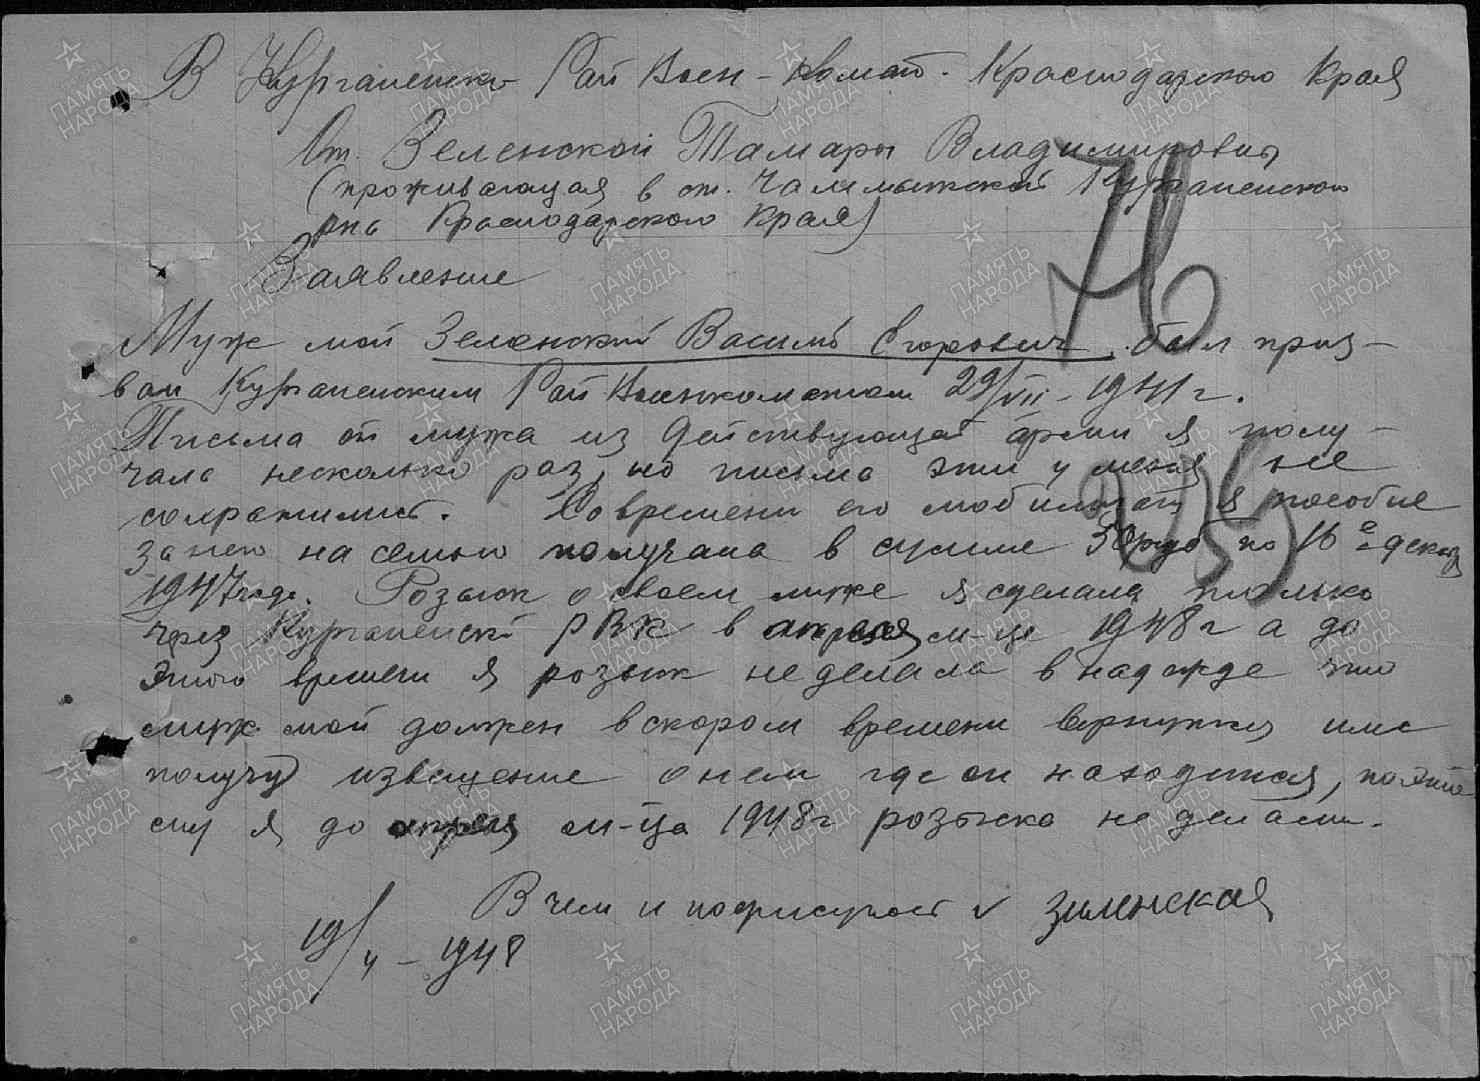 В Курганенски Рай Воен-Комат. Краснодарского Края
От. Зеленской Тамары Владимировны
(проживающая в ст. Чамлыкской Курганенского
р-на Краснодарского Края)
Заявление
Муж мой Зеленский Василий Егорович был приз-
ван Курганенским Рай Военкоматом 29/VII-1941 г.
Письма от мужа из действующей армии я полу-
чала несколько раз, но письма эти у меня не
сохранились. Со времени его мобилизац я пособие
за него на семью получала в сумме руб по 16е декаб
1947 года. Розыск о своем муже я сделала только
через Курганенски РВК в апреля м-це 1948 г а до
этого времени я розыск не делала в надежде что
муж мой должен в скором времени вернутся или
получу извещение о нем где он находится, поэто
му я до апреля м-ца 1948 г розыска не делала.
В чем и подписуюсь v Зиленская
19/4-1948
76
ПАМЯТЬ НАРОДА